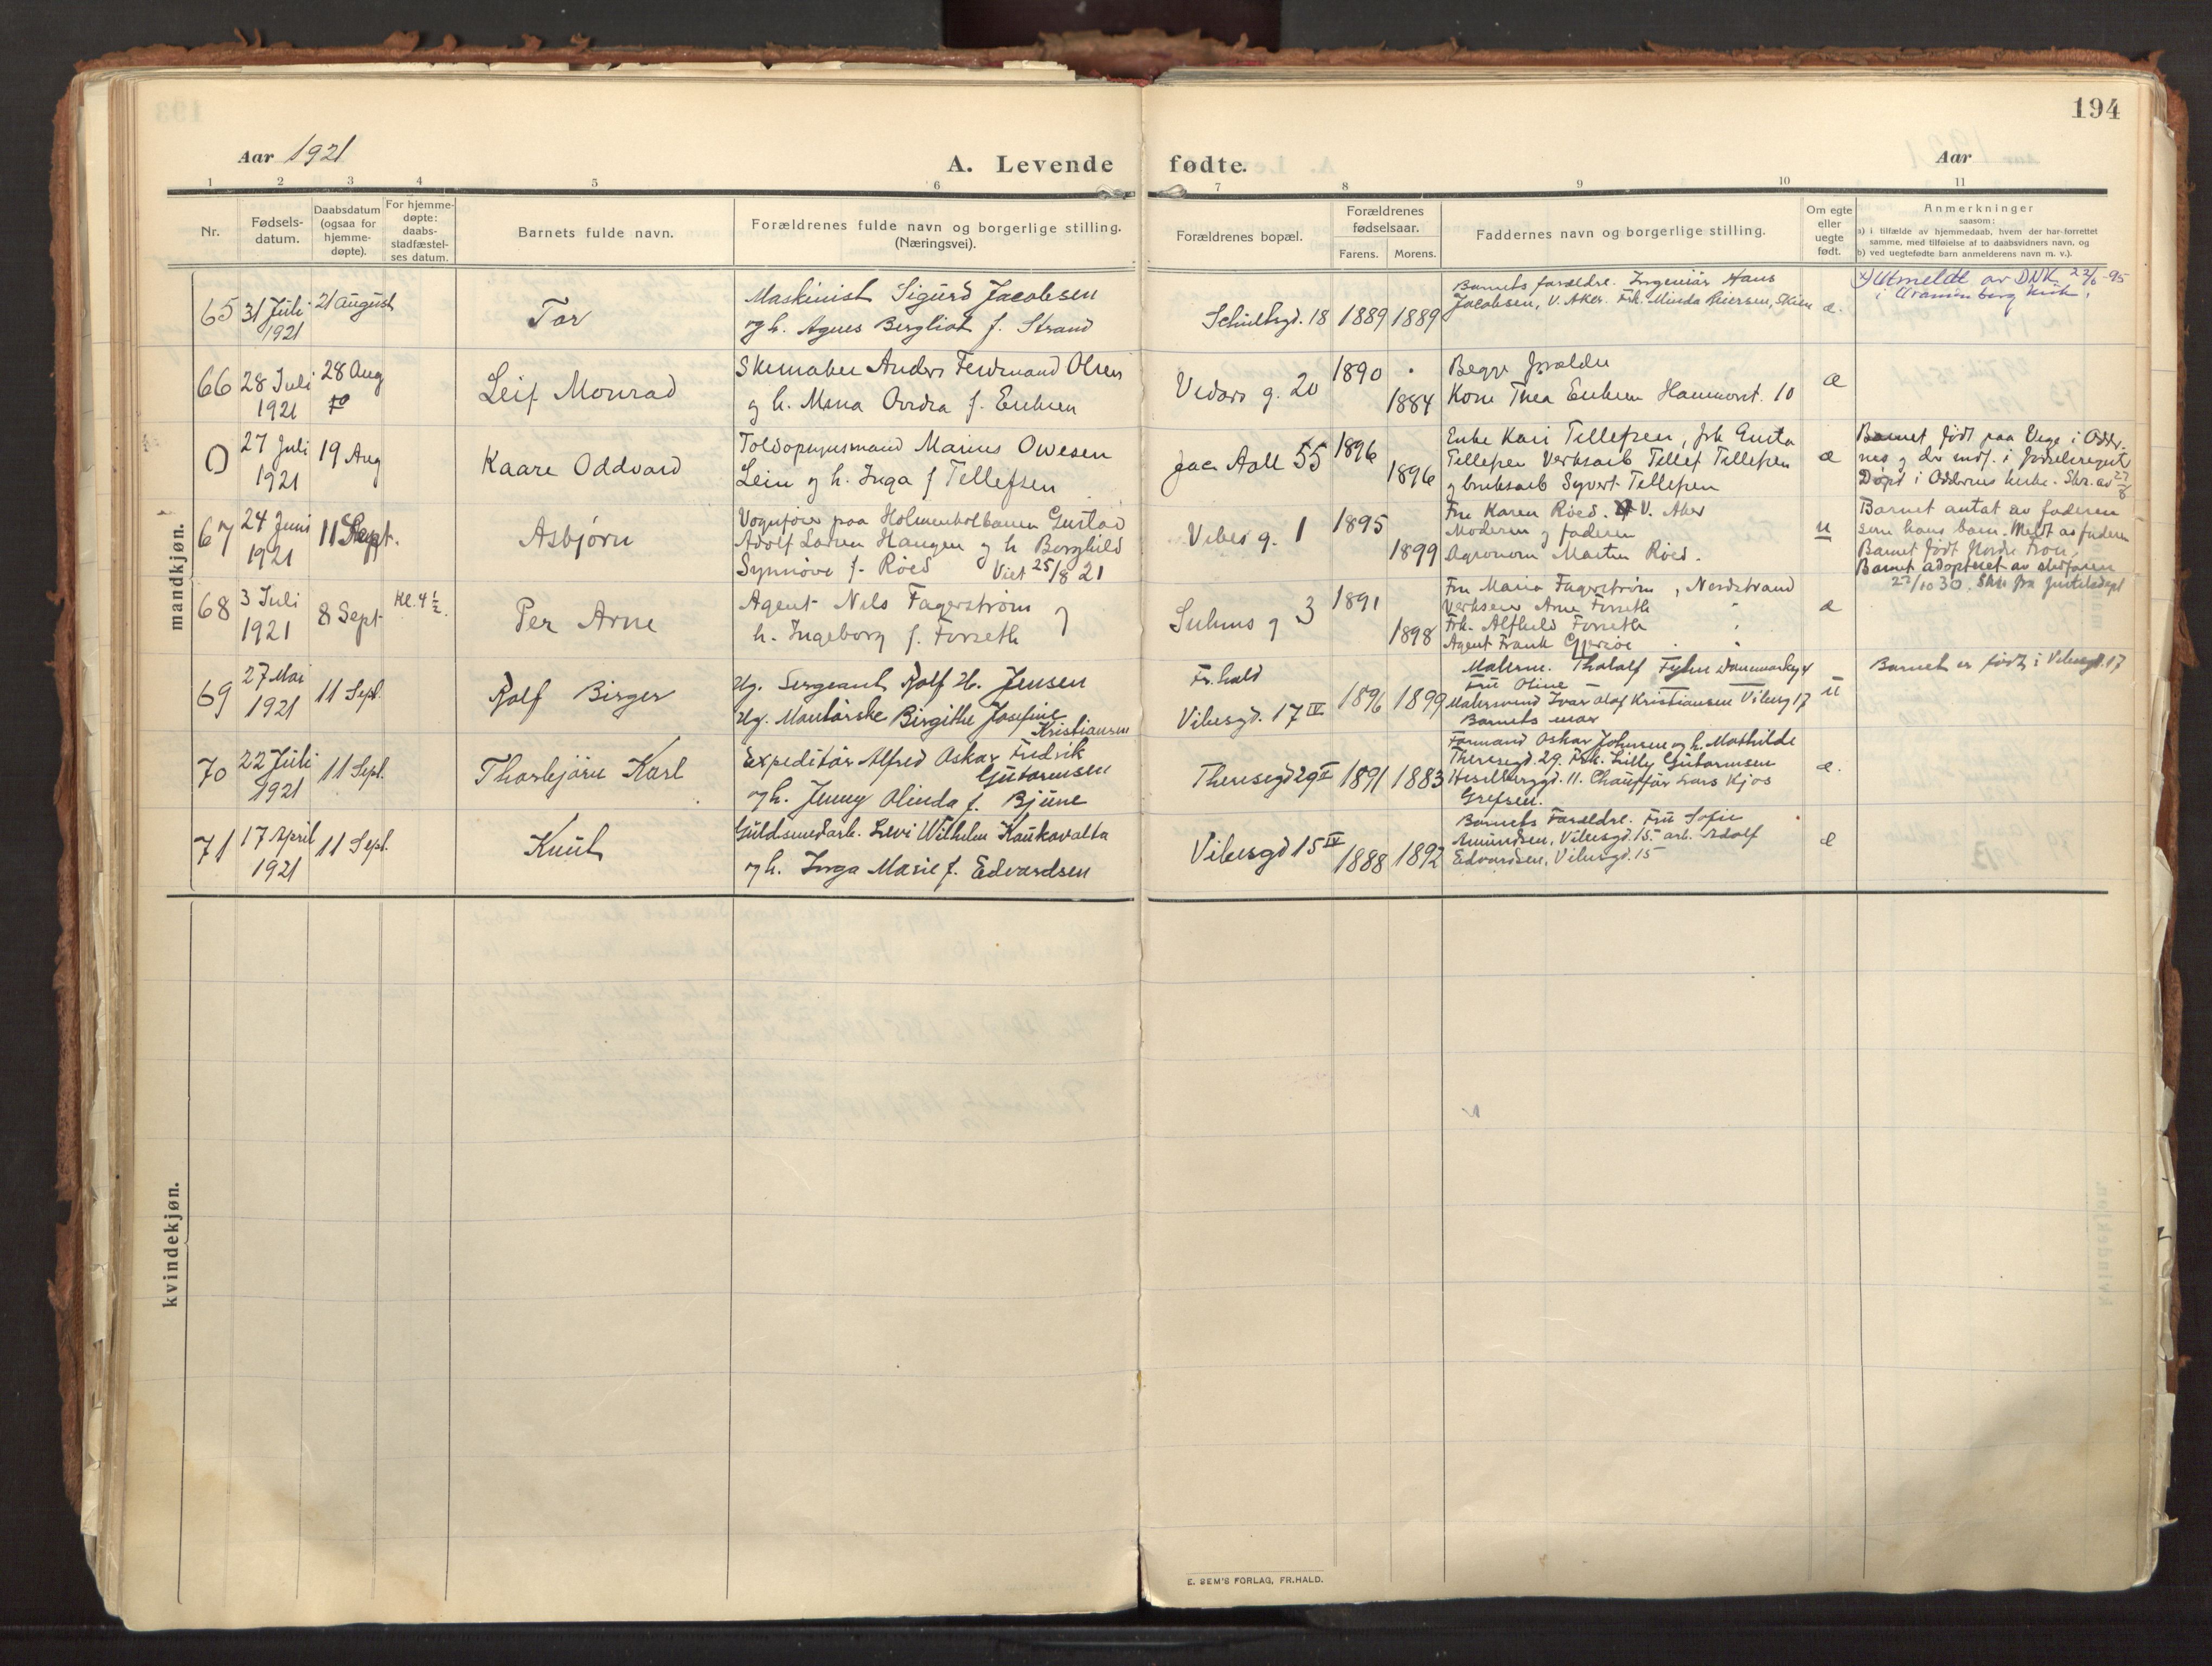 194
Aar 1921
A. Levende fødte.
Aar
1 2 3 4 5 6 7 8 9 10 11
Nr.
Fødsels-
datum.
Daabsdatum
(ogsaa for
hjemme-
døpte).
For hjemme-
døpte:
daabs-
stadfæstel-
ses datum.
Barnets fulde navn.
Forældrenes fulde navn og borgerlige stilling.
(Næringsvei).
Forældrenes bopæl.
Forældrenes
fødselsaar.
Farens. Morens.
Faddernes navn og borgerlige stilling.
Om egte
eller
uegte
født.
Anmerkninger
saasom:
a) i tilfælde av hjemmedaab, hvem der har forrettet
samme, med tilføielse af to daabsvidners navn, og
b) ved uegtefødte barn anmelderens navn m. v.).
mandkjøn.
65
31 Juli
1921
21 August
Tor
Maskinist Sigurd Jacobsen
og h. Agnes Bergliot f. Strand
Schultsgd. 18
1889 1889
Barnets forældre. Ingeniør Hans
Jacobsen, V. Aker. Frk. Minda Skien
æ.
Utmeldt av DNK 95
i kirk
66
28 Juli
1921
28 Aug
Leif Monrad
Skomaker Anders Ferdinand Olsen
og h. f. Eriksen
Vedars g. 20
1890
1884
Begge forældre
Kone Thea Eriksen 10
æ
0
27 Juli
1921
19 Aug
Kaare Oddvard
Toldopsynsmand Marius Owesen
Lein og h. Inga f Tellefsen
Jac. Aall 55
1896
1896
Enke Kari Tellefsen, frk Gusta
Tellefsen Verksarb Tellef Tellefsen
og bruksarb Syvert Tellefsen
æ
Barnet født paa Vege i Odder-
nes og der indf. i fødselsregist
Døpt i Oddernes kirke. Skr. av 27/8
67
24 Juni
1921
11 Sept.
Asbjørn
Vognfører paa Holmenkolbanen Gustav
Adolf Larsen Haugen og h Borghild
Synnøve f. Røed Viet 25/8 21
Vibes g. 1
1895
1899
Fru Karen Røed. V. Aker
Moderen og faderen
Agronom Martin Røed.
u
Barnet antat av faderen
som hans barn. Meldt av faderen
Barnet født Nordre Fron,
Barnet adopteret av stedfaren
22/10 30. Skr. fra justisdept
68
3 Juli
1921
8 Sept
Kl. 4 1/2.
Per Arne
Agent Nils Fagerstrøm og
h. Ingeborg f. Forseth
Suhms g 3
1891
1898
Fru Maria Fagerstrøm, Nordstrand
Verkseier Arne Forseth "
Frk. Alfhild Forseth "
Agent Frank "
æ
69
27 Mai
1921
11 Sept.
Rolf Birger
Ug. Sergeant Rolf H. Jensen
Ug. Birgithe Josefine
Kristiansen
Fr.hald
Vibesgd. 17 IV
1896 1899
Malerm. Tholalf
Fru Oline
Malersvend Ivar Olaf Kristiansen Vibesg 17
Barnets mor
u
Barnet er født i Vibesgt. 17
70
22 Juli
1921
11 Sept.
Thorbjørn Karl
Expeditør Alfred Oskar Fredrik
Gutormsen
og h. Jenny Olinda f. Bjune
Theresegd 29 II
1891 1883
Formand Oskar Johnsen og h. Mathilde
Theresegd. 29. Frk. Lilly Gutormsen
Hesselbergsgd. 11. Chauffør Lars Kjos
Grefsen.
æ.
71
17 April
1921
11 Sept.
Knut
Guldsmedarb. Levi Wilhelm Kaukovalta
og h. Inga Marie f. Edvardsen
Vibesgd 15 IV
1888 1892
Barnets Forældre. Fru Sofie
Amundsen, Vibesgd. 15. arb. Adolf
Edvardsen, Vibesgd. 15
æ
kvindekjøn.
E. SEM'S FORLAG, FR.HALD.